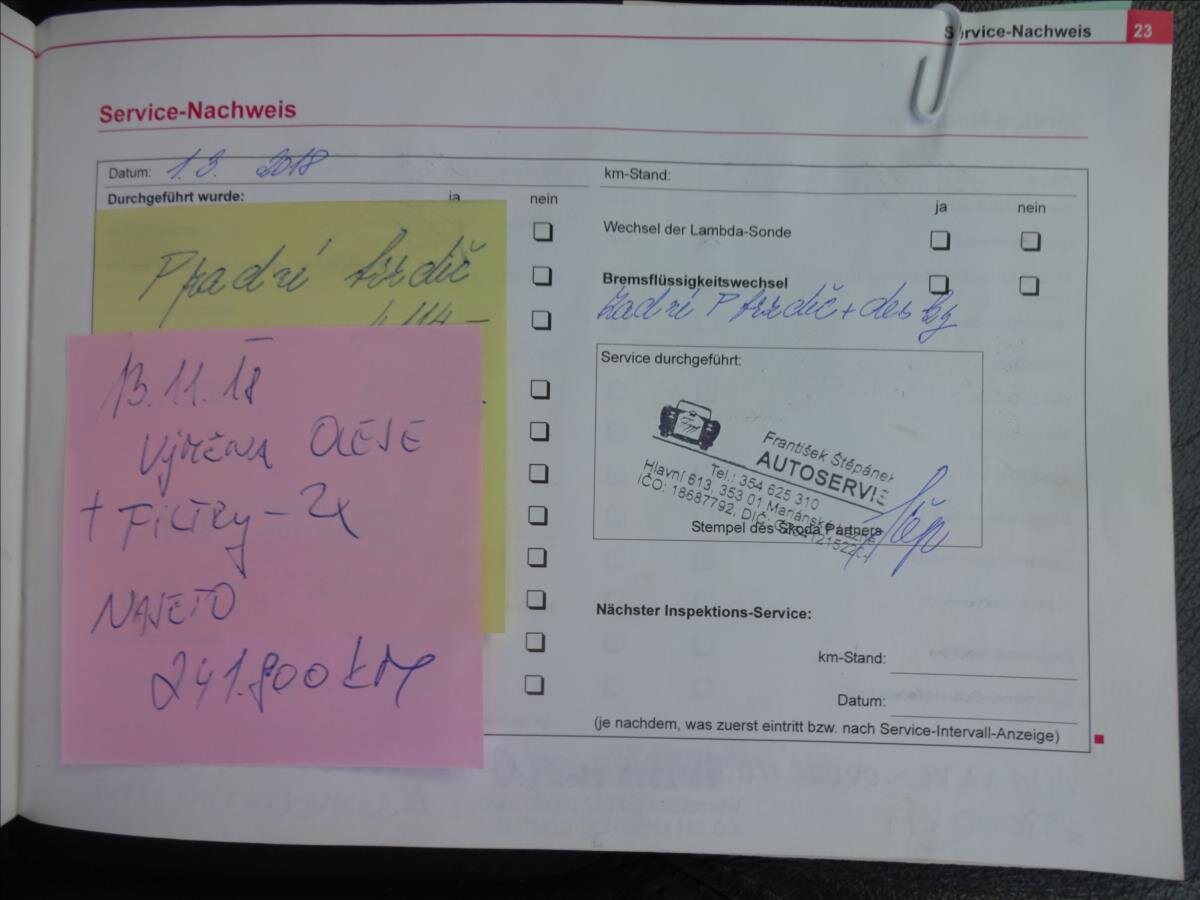 Service-Nachweis
23
Service-Nachweis
Datum: 1.3. 2018
km-Stand:
Durchgeführt wurde:
ja
nein
ja
nein
Wechsel der Lambda-Sonde
Bremsflüssigkeitswechsel
zadní P brzdič + desky
Service durchgeführt:
František Štěpánek
AUTOSERVIS
Tel.: 354 625 310
Hlavní 613, 353 01 Mariánské
IČO: 18687792, DIČ:
Stempel des Škoda Partners
Nächster Inspektions-Service:
km-Stand:
Datum:
(je nachdem, was zuerst eintritt bzw. nach Service-Intervall-Anzeige)
P zadní brzdič
13.11.18
VÝMĚNA OLEJE
+ FILTRY - 2x
NAJETO
241.800 KM